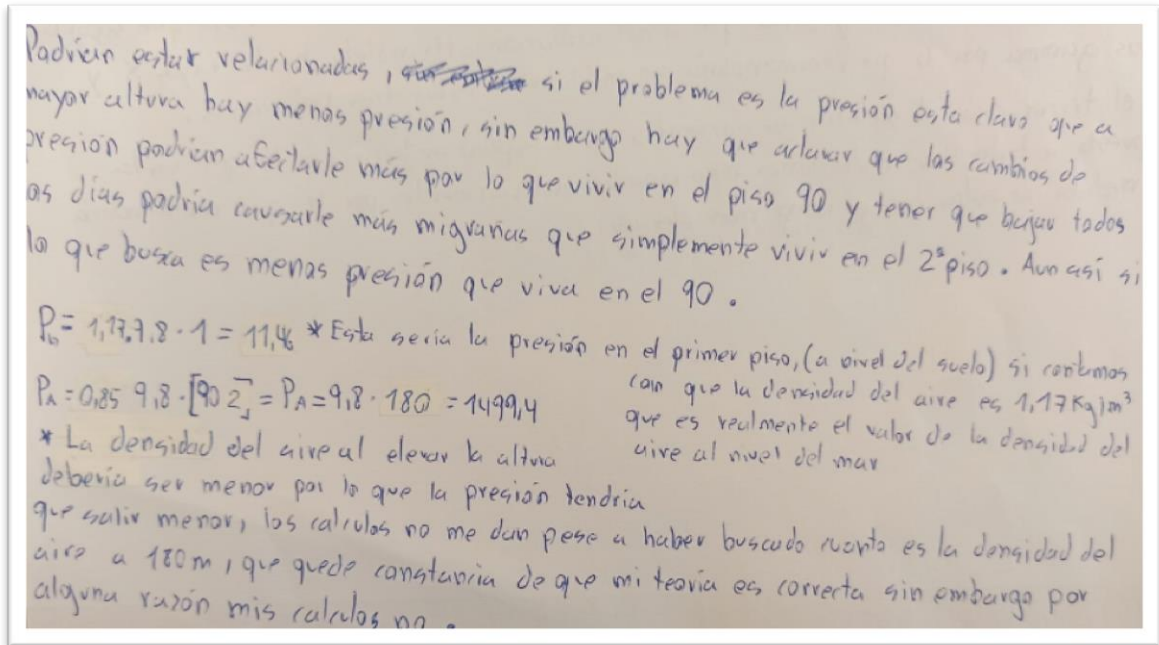 Podrían estar relacionadas, si el problema es la presión esta claro que a
mayor altura hay menos presión, sin embargo hay que aclarar que los cambios de
presión podrían afectarle más por lo que vivir en el piso 90 y tener que bajar todos
os días podría causarle más migrañas que simplemente vivir en el 2º piso. Aun así si
lo que busca es menos presión que viva en el 90.
Pb = 1,17.9,8 · 1 = 11,46 * Esta seria la presión en el primer piso, (a nivel del suelo) si contamos
con que la densidad del aire es 1,17 Kg/m³
PA = 0,85 9,8 · [90 2] = PA = 9,8 · 180 = 1499,4
que es realmente el valor de la densidad del
* La densidad del aire al elevar la altura
aire al nivel del mar
debería ser menor por lo que la presión tendría
que salir menor, los calculos no me dan pese a haber buscado cuanto es la densidad del
aire a 180m, que quede constancia de que mi teoría es correcta sin embargo por
alguna razón mis calculos no.